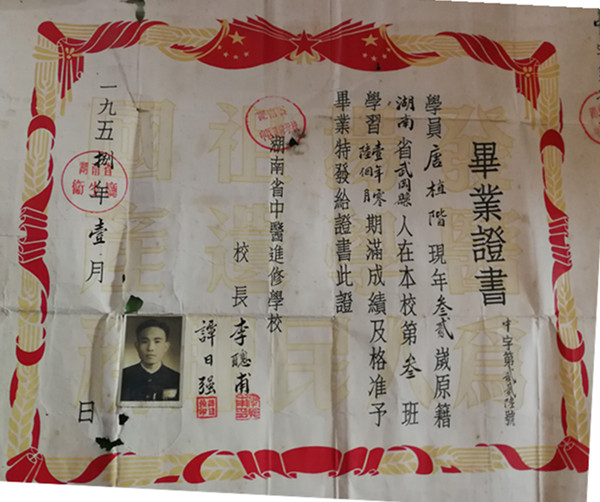 畢業證書
中字第貳貳陸號
學員唐植階現年叁貳嵗原籍
湖南省武岡縣人在本校第叁班
學習壹年零陸個月期滿成績及格准予
畢業特發給證書此證
湖南省中醫進修學校
校長李聰甫
譚日强
一九五捌年壹月 日